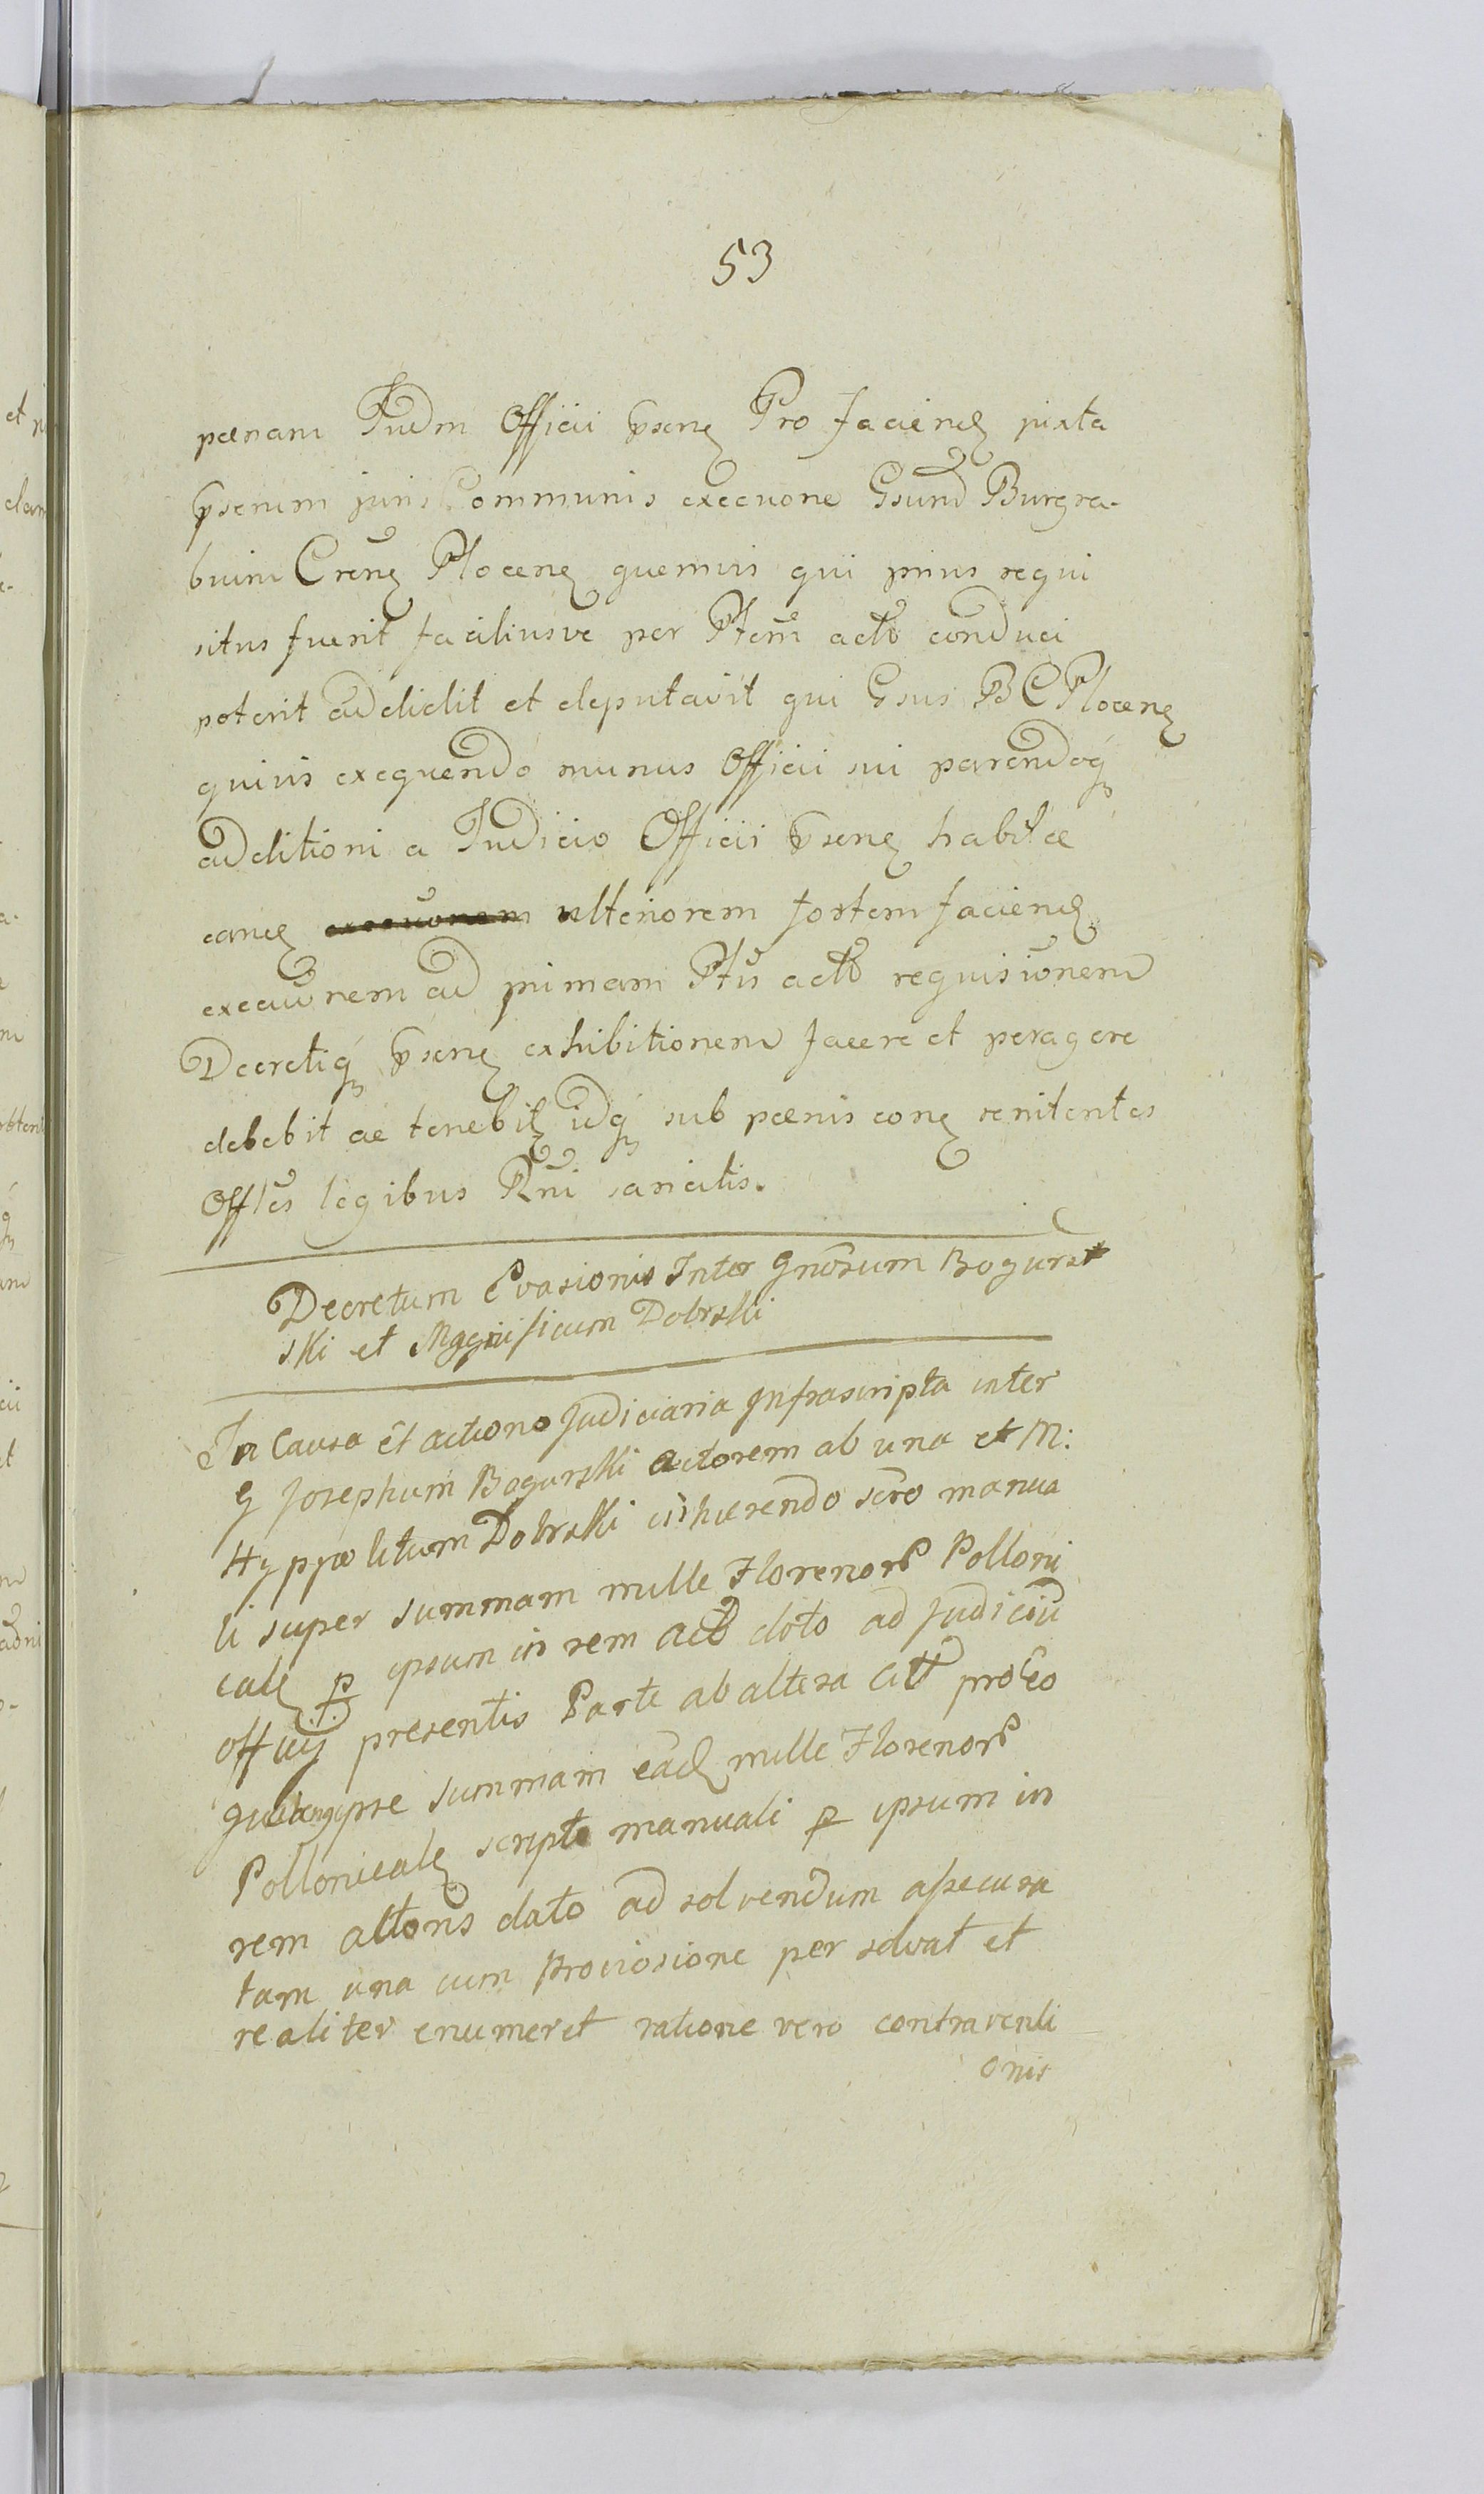 53
pœnam Judm Officii pseñ Pro facienđ juxta
pserum juris Communis execuone Gsum Burgra-
bium Crens Plocens quemvis qui prius requi
situs fuerit faciliusve per Ptem actō conduci
poterit addidit et deputavit qui Gsus B C Plocens
quivis exequendo munus Officii sui parendoq
additioni a Judicio Officii psens habitæ
eand ulteriorem fortem faciend
execuōnem ad primam Ptis actō requisiōnem
Decretiq psens exhibitionem facere et peragere
debebit ac tenebit idq sub pœnis cone renitentes
Offles legibus Rni sancitis.
Decretum Evasionis Inter Gnosum Bogurs
ski et Magnificum Dobrski
In Causa et actione Judiciaria Infrascripta inter
G Josephum Bogurski actorem ab una et M:
Hyppolitum Dobrski inhærendo scro manua
li super summam mille Florenor Polloni
cal p ipsum in rem actō dato ad Judiciū
officij presentis Parte ab altera Citt pro Eo
quia ipse summam eand mille Florenor
Pollonical scripto manuali p ipsum in
rem actoris dato ad solvendum assecura
tam una cum provisione per solvat et
realiter enumeret ratione vero contraventi
onis